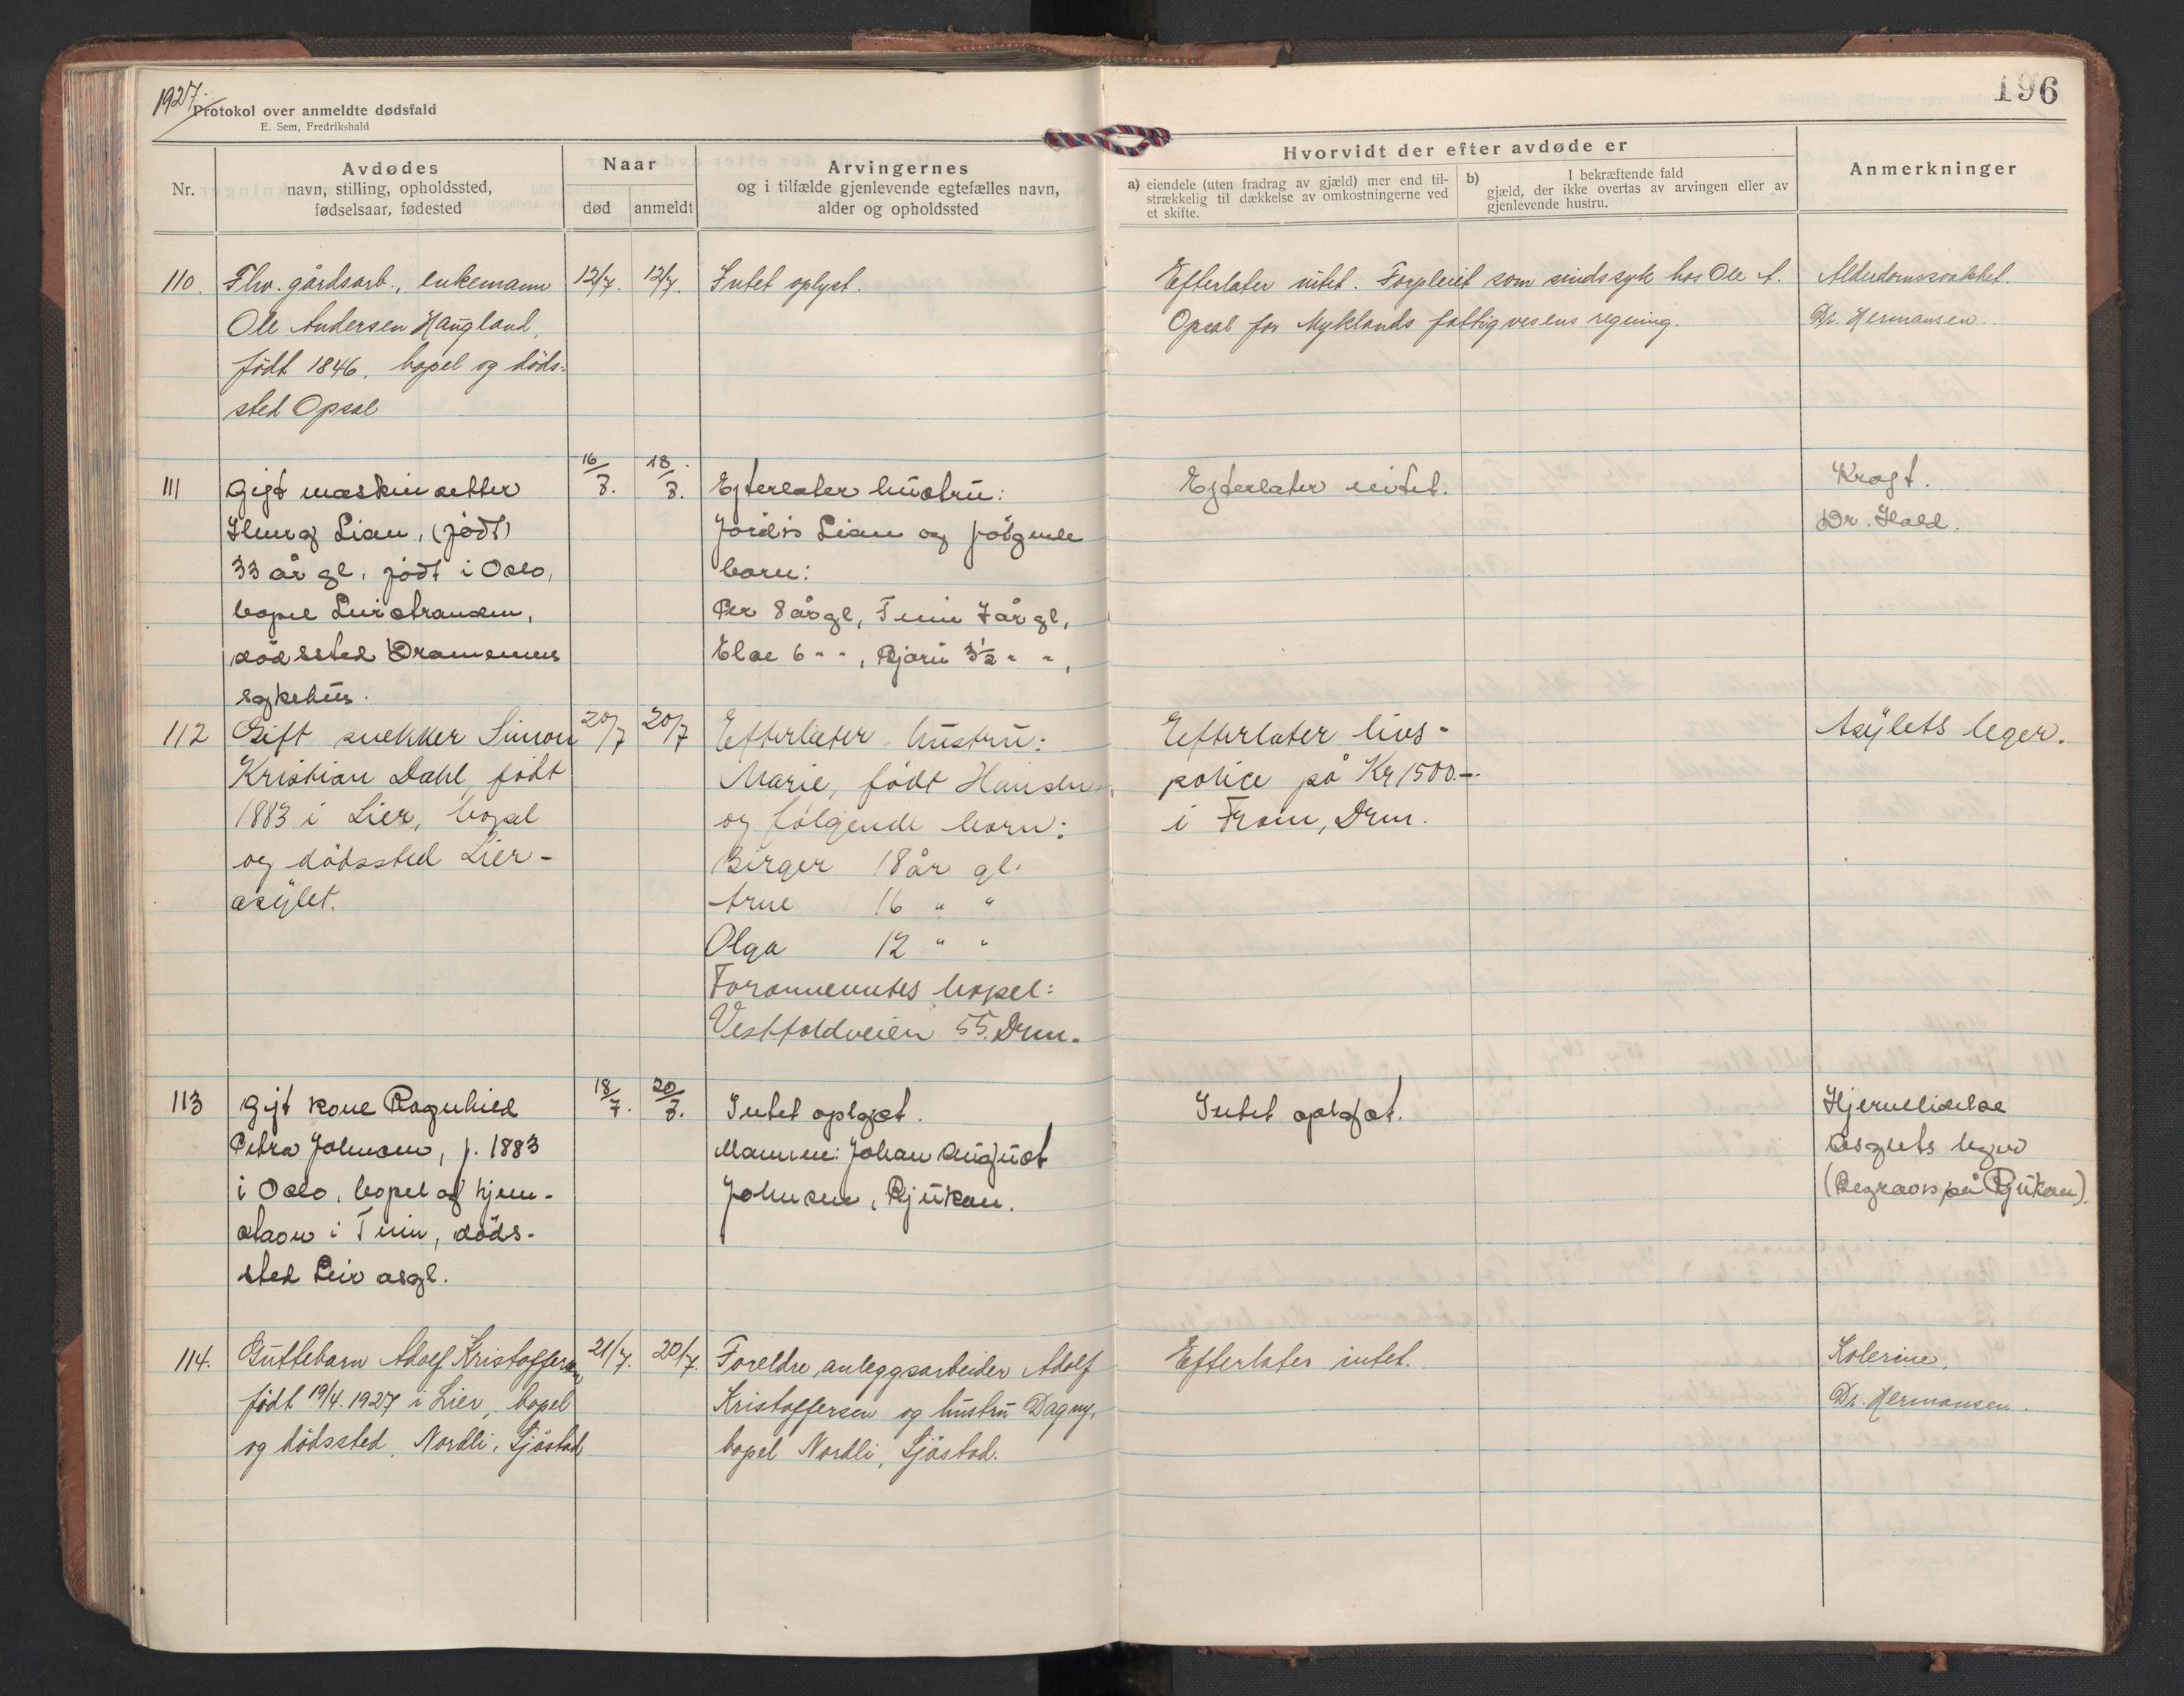 1927.
Protokol over anmeldte dødsfald
E. Sem, Fredrikshald
196
Nr.
Avdødes
navn, stilling, opholdssted,
fødselsaar, fødested
Naar
død
anmeldt
Arvingernes
og i tilfælde gjenlevende egtefælles navn,
alder og opholdssted
Hvorvidt der efter avdøde er
a) eiendele (uten fradrag av gjæld) mer end til-
strækkelig til dækkelse av omkostningerne ved
et skifte.
b) I bekræftende fald
gjæld, der ikke overtas av arvingen eller av
gjenlevende hustru.
Anmerkninger
110. Fhv. gårdsarb., enkemann
Ole Andersen Haugland,
født 1846. bopel og døds-
sted Opsal
12/7. 12/7.
Intet oplyst.
Efterlater intet. Forpleiet som sindssyk hos Ole A.
Opsal for Myklands fattigvesens regning.
Alderdomssvakhet.
Dr. Hermansen.
111 Gift maskinsetter
Lian, (født)
33 år gl. født i Oslo,
bopel Lierstranden,
dødssted Drammens
sykehus.
16/7. 18/7.
Efterlater hustru:
Jordis Lian og følgende
barn:
Per 8 år gl, Finn 7 år gl,
Else 6 " ", Bjørn 3½ " ",
Efterlater intet.
Kræft.
Dr. Hald.
112 Gift snekker Simon
Kristian Dahl, født
1883 i Lier, bopel
og dødssted Lier-
asylet.
20/7 20/7
Efterlater hustru:
Marie, født Hansen
og følgende barn:
Birger 18 år gl.
Arne 16 " "
Olga 12 " "
Forannevntes bopel:
Vestfoldveien 55. Drm.
Efterlater livs-
police på Kr 1500.-
i Fram, Drm.
Asylets leger.
113 Gift kone Ragnhild
Petra Johnsen, f. 1883
i Oslo, bopel og hjem-
stavn i Tinn, døds-
sted Lier asyl.
18/7. 20/7.
Intet oplyst.
Mannen: Johan August
Johnsen, Rjukan.
Intet oplyst.
Hjernelidelse
Asylets leger
(Begraves på Rjukan).
114. Guttebarn Adolf Kristoffersen,
født 19/4. 1927 i Lier, bopel
og dødssted, Nordli, Sjåstad
21/7. 22/7.
Foreldre, anleggsarbeider Adolf
Kristoffersen og hustru Dagny,
bopel Nordli, Sjåstad.
Efterlater intet.
Kolerine,
Dr. Hermansen.